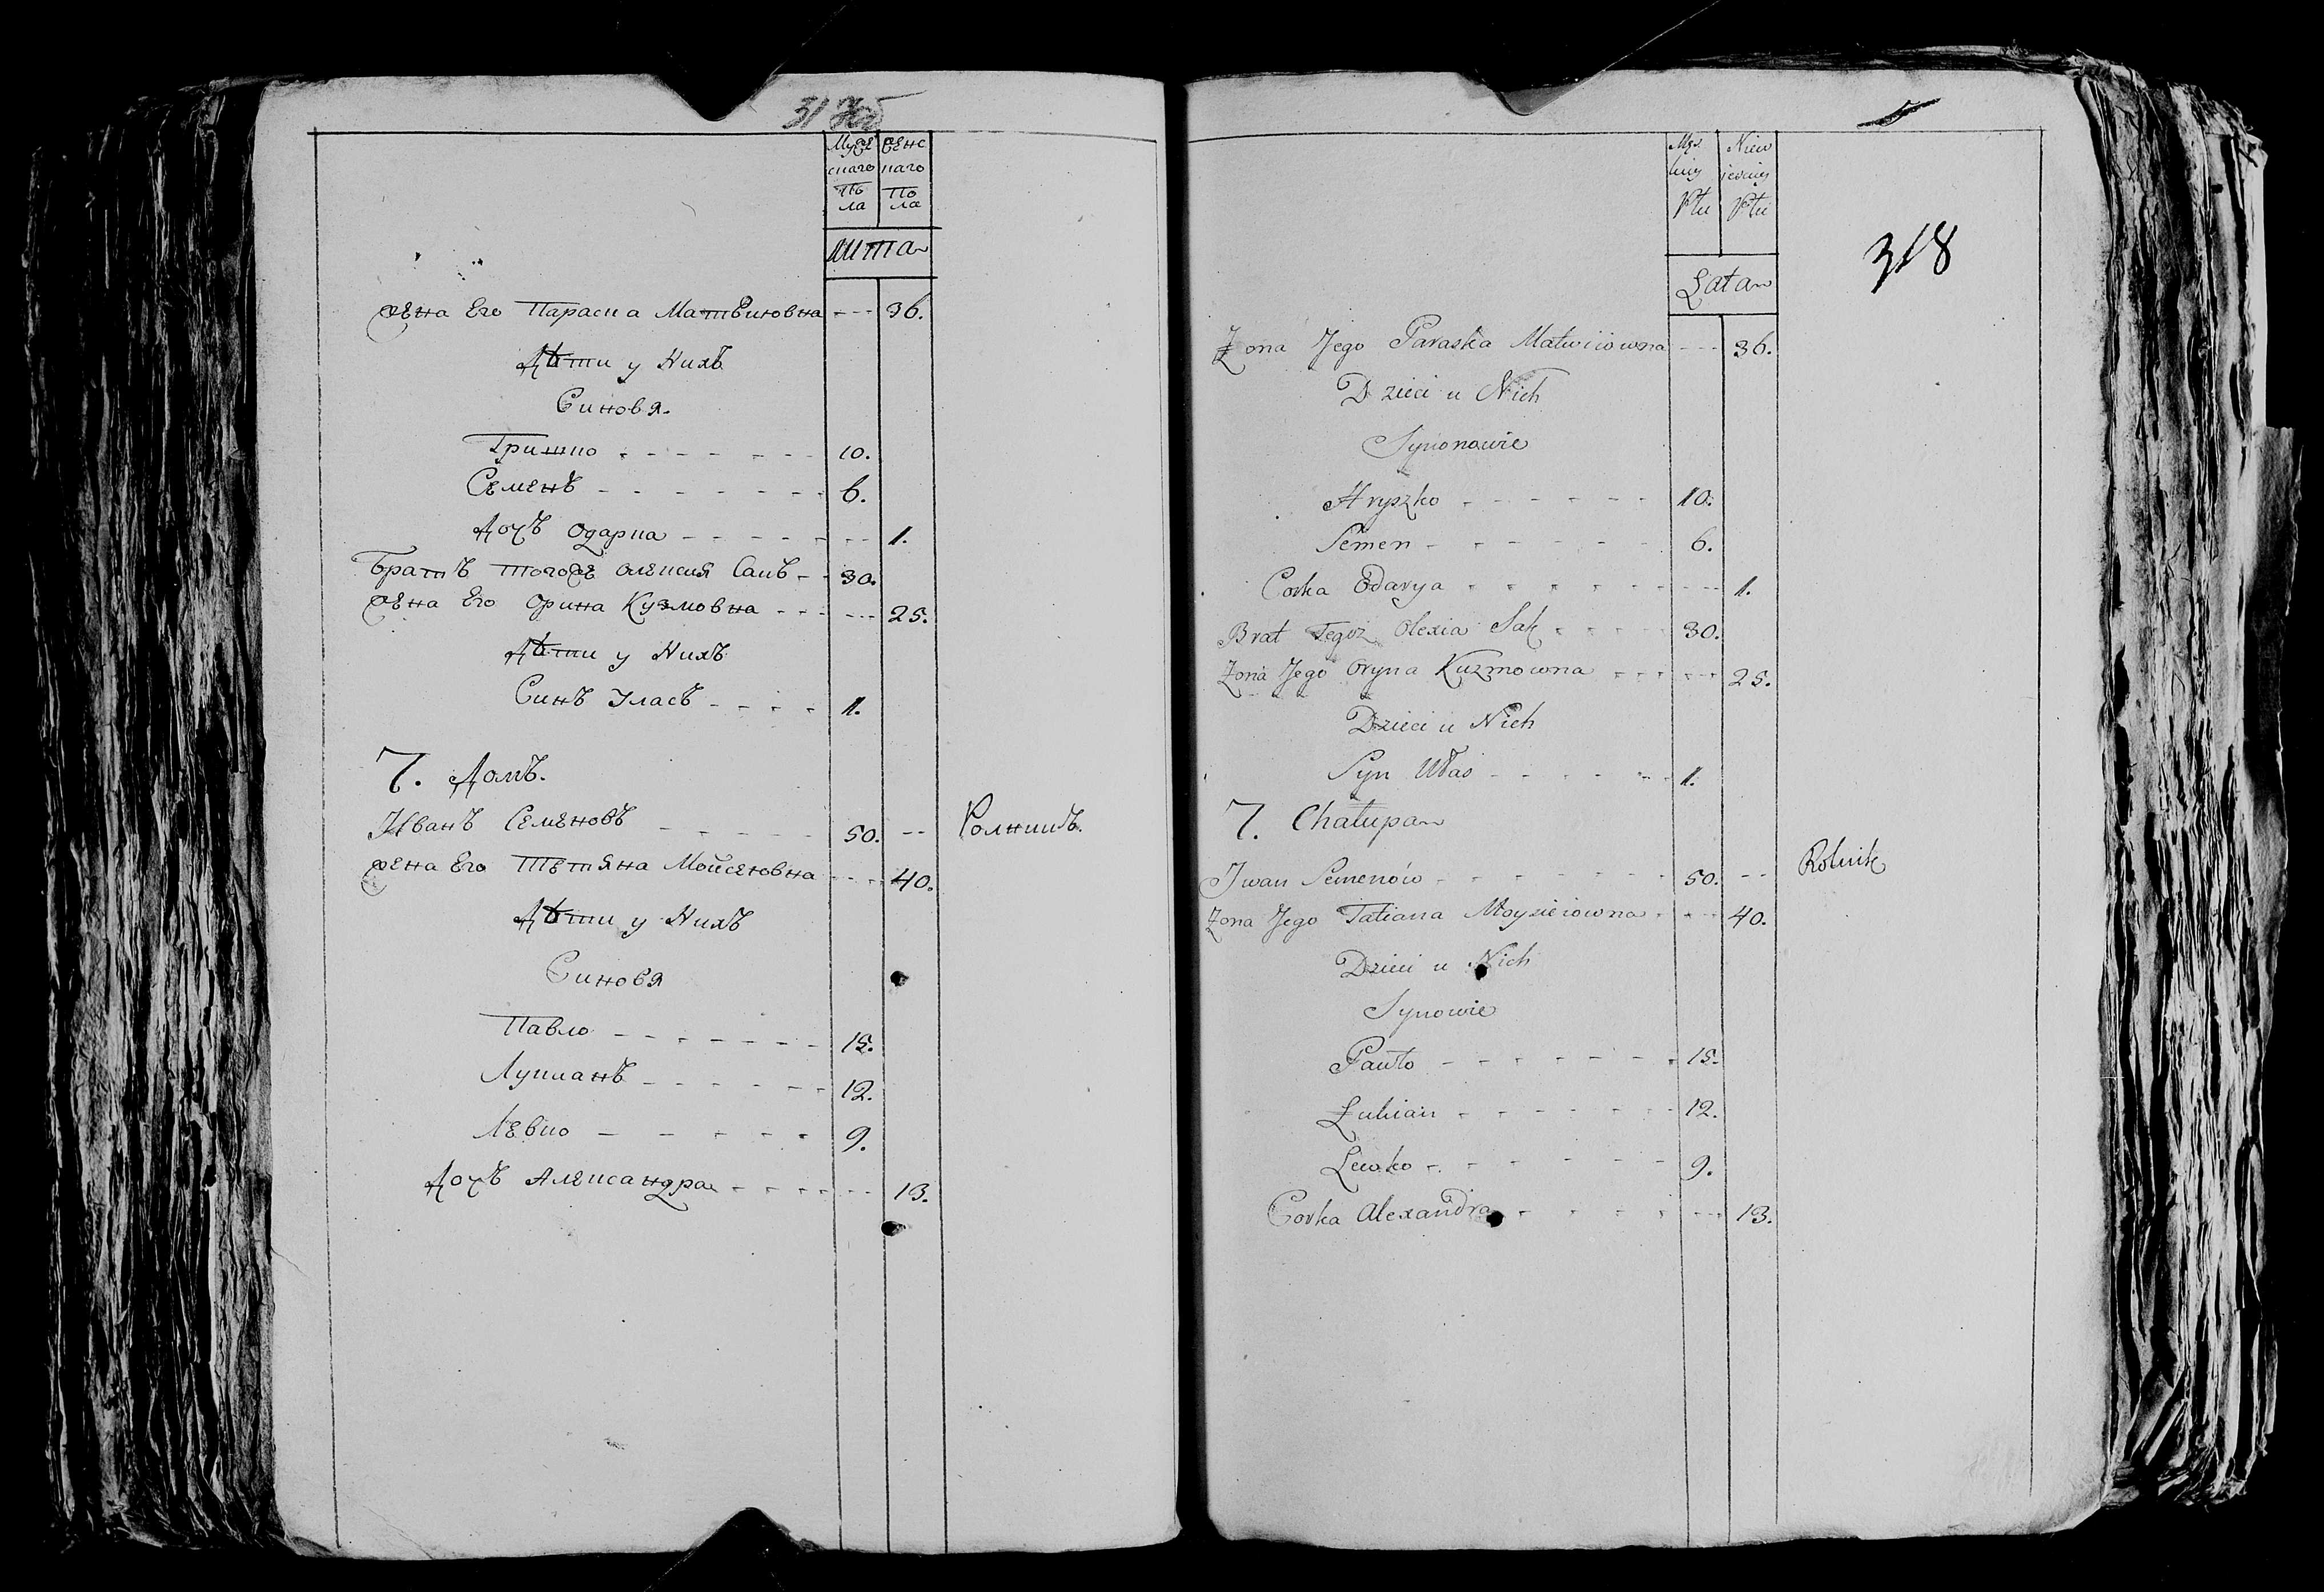 317 об
Муже Женс
скаго каго
По По
ла ла
лита
Жена Его Параска Матвеиовна --- 36.
Дѣти у Нихъ
Синовя.
Гришко - - - - - - 10.
Семенъ - - - - - - 6.
Дочъ Одарка - - - - - - 1.
Братъ тогожъ Олексия Сакъ - - 30.
Жена Его Орина Кузмовна - - - --- 25.
Дѣти у Нихъ
Синъ Уласъ - - - - 1.
7. Домъ.
Иванъ Семеновъ - - - - - 50. -- Ролникъ.
Жена Его Тетяна Мойсеювна - - - 40.
Дѣти у Нихъ
Синовя
Павло - - - - - - - 15.
Лукианъ - - - - - - 12.
Левко - - - - - 9.
Дочъ Александра - - - - - - - 13.
318
Męz Niew
kiey iesciey
Płci Płci
Lata
Żona Jego Paraska Matwiiowna --- 36.
Dzieci u Nich
Synonowie
Hryszko - - - - - - 10.
Semen - - - - - - 6.
Corka Odarya - - - - - - --- 1.
Brat Tegoż Olexia Sak - - - - 30.
Żona Jego Oryna Kuzmowna - - - --- 25.
Dzieci u Nich
Syn Ułas - - - - - - 1.
7. Chałupa
Iwan Semenów - - - - - - - 50. -- Rolnik
Żona Jego Tatiana Moysieiowna - --- 40.
Dzieci u Nich
Synowie
Pawło - - - - - - - 15.
Łukian - - - - - - - 12.
Lewko - - - - - - - 9.
Corka Alexandra - - - - - --- 13.